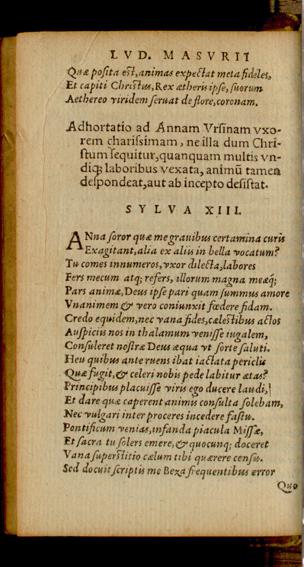 LVD. MASVRII
Quæ posita est, animas expectat meta fideles,
Et capiti Christus, Rex ætheris ipse, suorum
Aethereo viridem seruat de flore, coronam.
Adhortatio ad Annam Vrsinam vxo-
rem charissimam, ne illa dum Chri-
stum sequitur, quanquam multis vn-
diq; laboribus vexata, animū tamen
despondeat, aut ab incepto desistat.
SYLVA XIII.
ANna soror quæ me grauibus certamina curis
Exagitant, alia ex aliis in bella vocatum?
Tu comes innumeros, vxor dilecta, labores
Fers mecum atq; refers, illorum magna meaq;
Pars animæ, Deus ipse pari quam summus amore
Vnanimem & vero coniunxit fœdere fidam.
Credo equidem, nec vana fides, cælestibus actos
Auspiciis nos in thalamum venisse iugalem,
Consuleret nostræ Deus æqua vt sorte saluti.
Heu quibus ante ruens ibat iactata periclis
Quæ fugit, & celeri nobis pede labitur ætas?
Principibus placuisse viris ego ducere laudi,
Et dare quæ caperent animis consulta solebam,
Nec vulgari inter proceres incedere fastu.
Pontificum venias, infanda piacula Missæ,
Et sacra tu solers emere, & quocunq; doceret
Vana superstitio cælum tibi quærere censu.
Sed docuit scriptis me Beza frequentibus error
Quo